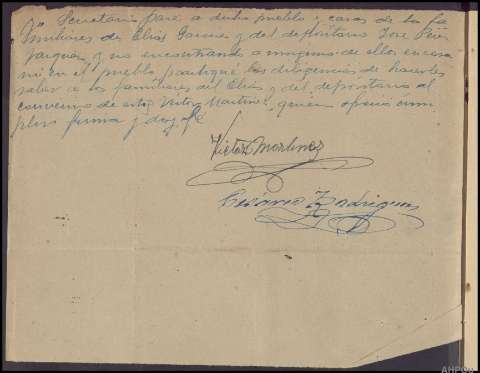 Secretario pasé a dicho pueblo y casas de los fa
miliares de Elías y del depositario José Pérez
y no encontrando a ninguno de ellos en casa
ni en el pueblo, practiqué las diligencias de hacerles
saber a los familiares del Elías y del depositario al
convecino de estos Víctor Martínez, quien ofreció cum
plir firma y doy fé
Victor Martinez
Cesáreo Rodriguez
AHPOU